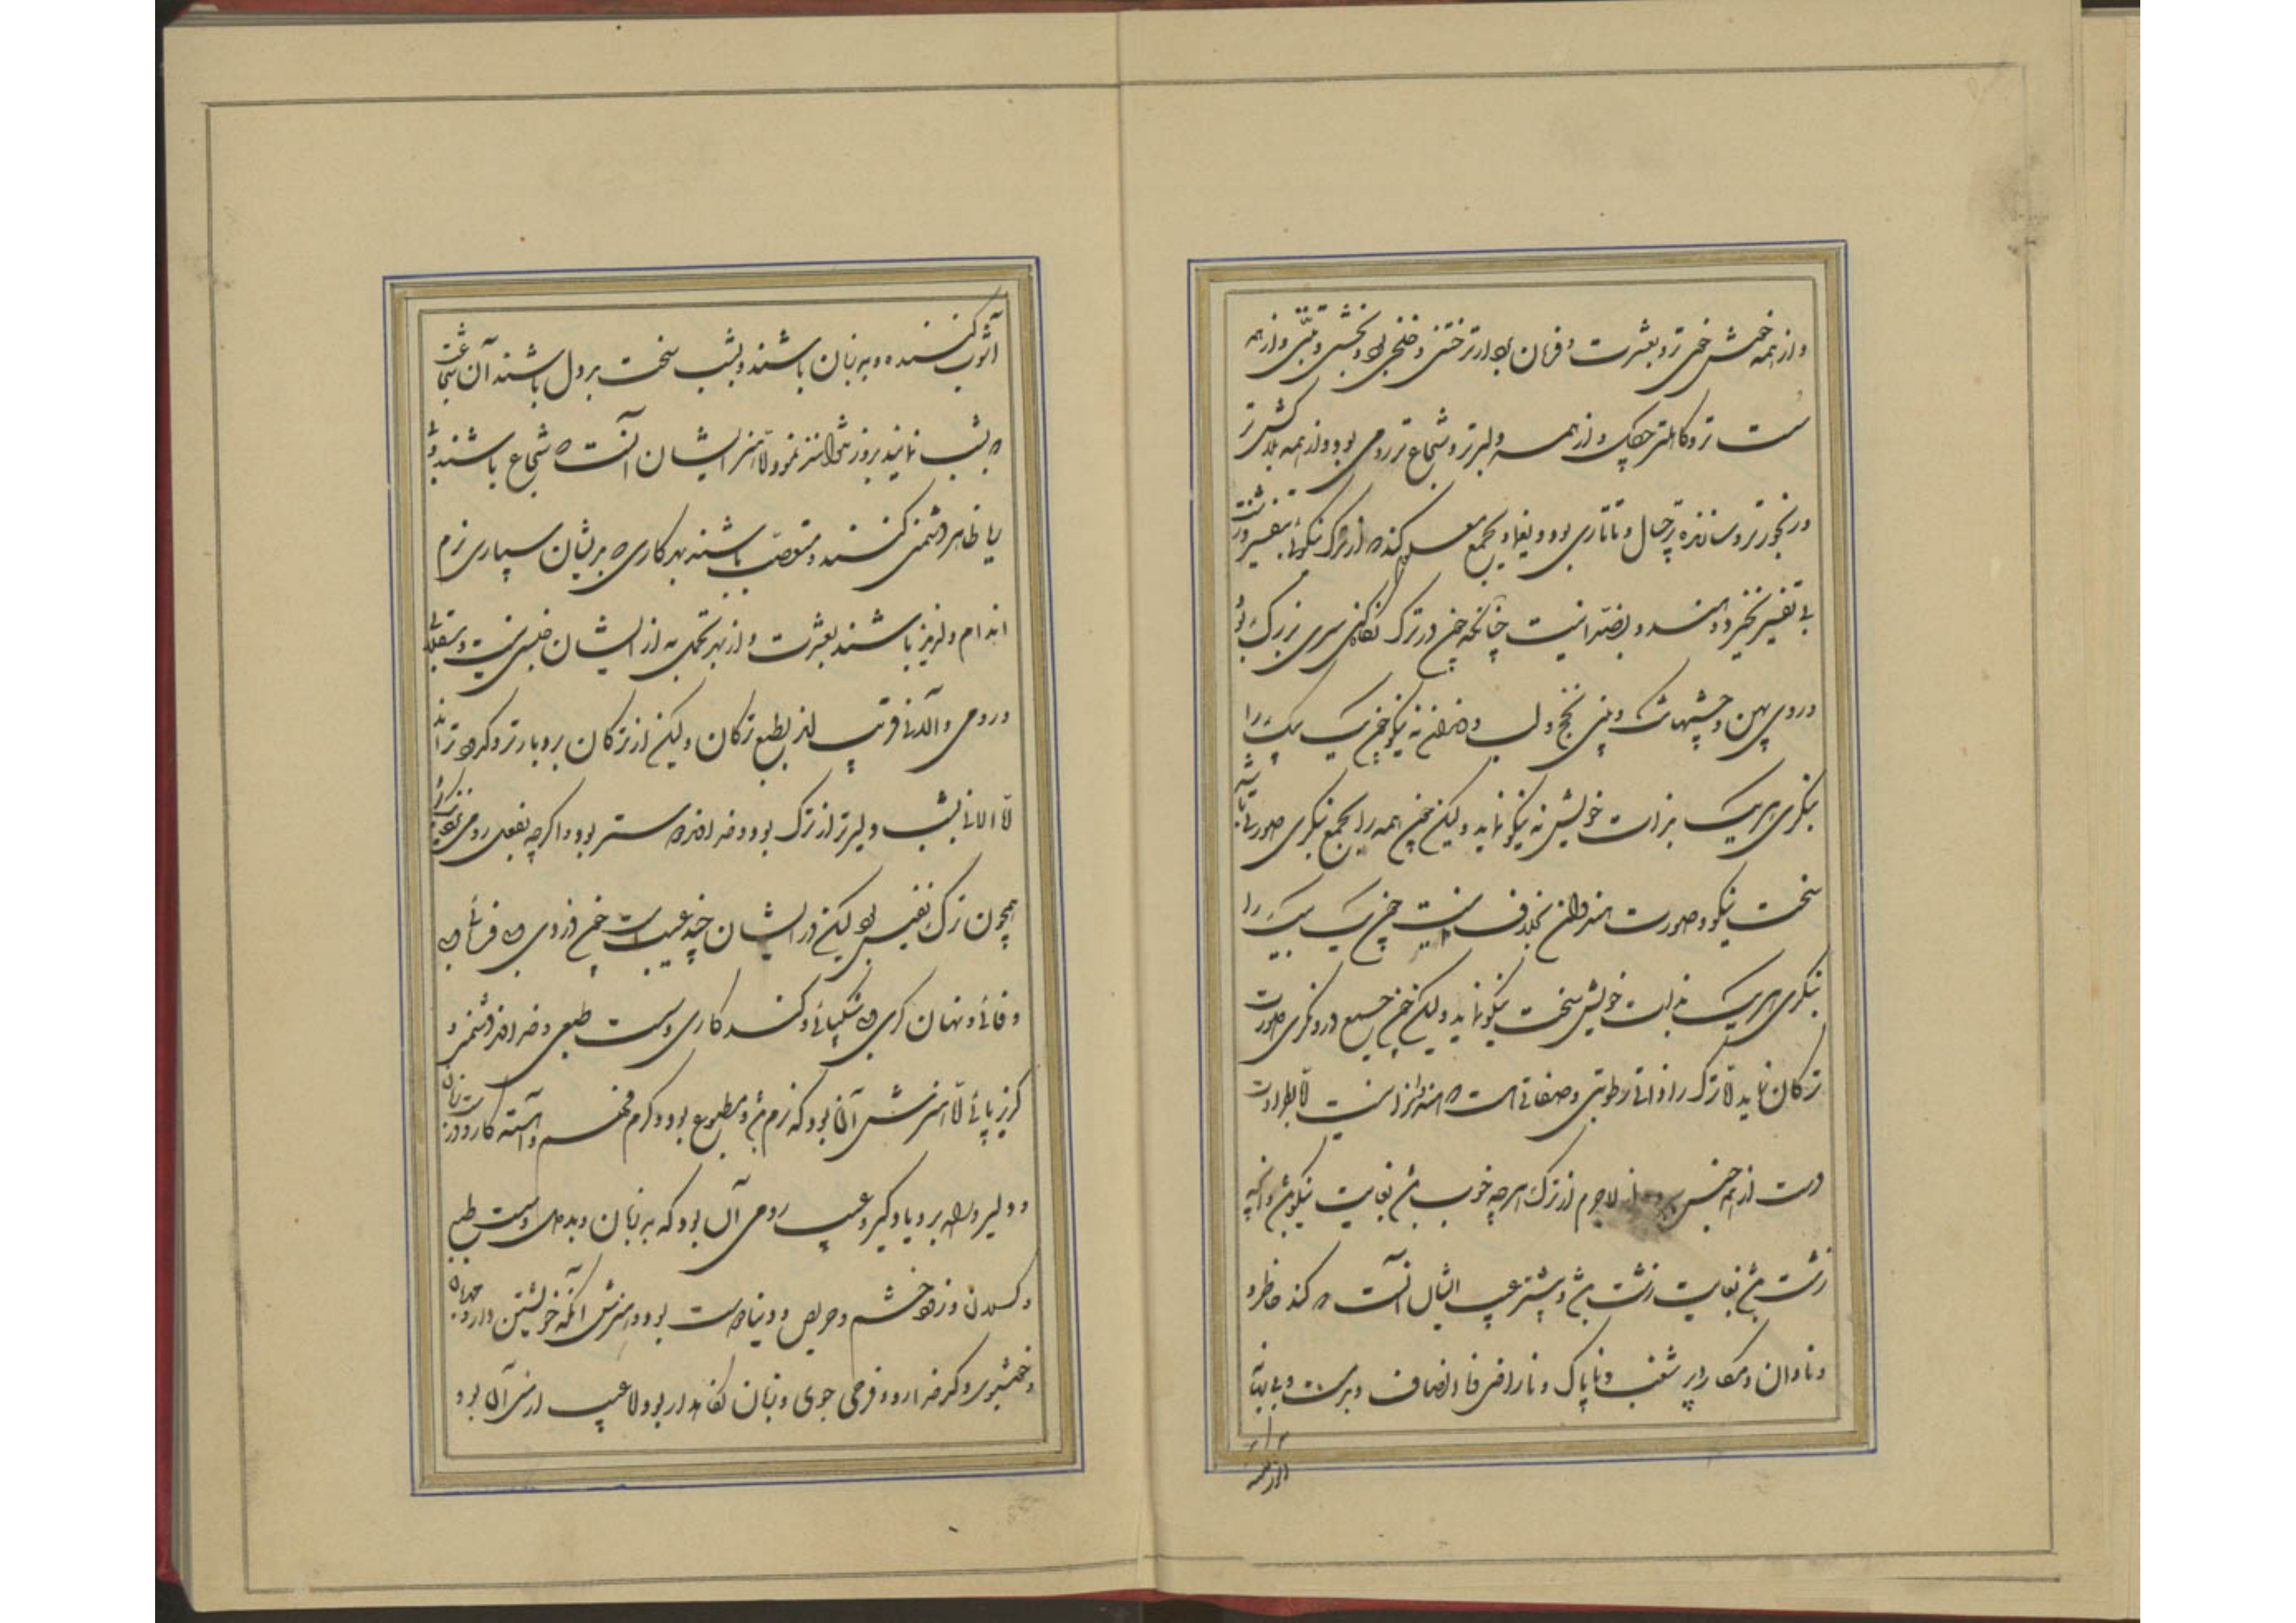 و از همه خوش خوی تر و بعشرت و فرمان بردارتر ختنی و خلخی بود و نخشبی و تبتی و از همه
سست تر و کاهلتر چگلی و از همه دلیرتر و شجاع تر رومی بود و از همه بلاکش تر
و رنجورتر و سازنده تر تاتاری بود و یغما و بجمع معلوم کند که از ترک نیکوئی بتفسیر و زشت
بی تفسیر نخیزد و هندو بضد اینست چنانکه چون در ترک نگاه کنی سری بزرگ بود
و روی پهن و چشمهای تنگ و بینی پخج و لب و دندان نه نیکو چون یک یک را
بنگری هر یک بذات خویش نه نیکو نماید ولیکن چون همه را بجمع بنگری صورتی باشد
سخت نیکو و صورت هندوان بخلاف اینست چون یک یک را
بنگری هر یک بذات خویش سخت نیکو نماید ولیکن چون بجمع در نگری صورت
ترکان نماید لا ترک را ذاتی رطوبتی و صفائی است که هندو را نیست لا بطراوت
دست از همه جنس لاجرم از ترک هر چه خوب باشد بغایت نیکو باشد و آنچه
زشت باشد بغایت زشت باشد و بیشتر عیب ایشان آنست که کند خاطر و
و نادان و مکار و پر شغب و ناپاک و ناراضی و ناانصاف و بدمست و بی بهانه
آشوب کننده و بد زبان باشند و بشب سخت بددل باشند آن شجاعت
که بشب نمایند بروز نتوانند نمود و لا هنر ایشان آنست که شجاع باشند و بی
ریا ظاهر دشمنی کنند و متعصب باشند بهر کاری که بدیشان سپاری نرم
اندام و لذیذ باشند بعشرت و از بهر تجمل به از ایشان جنسی نیست و سقلابی
و رومی و آلانی قریب اند بطبع ترکان ولیکن از ترکان بردبارتر و کدودتر اند
لا الانی بشب دلیرتر از ترک بود و خداوند دوست تر بود و اگرچه بفعل رومی نزدیک
همچون ترک نفیس بود لیکن در ایشان چند عیب است چون دزدی و بی فرمانی و بی
وفائی و نهان کری و بی شکیبائی و کند کاری و سست طبعی و خداوند دشمنی و
گریز پائی لا هنرش آن بود که نرم تن و مطبوع بود و گرم فهم و آهسته کار و درست زبان
و دلیر و راه بر و یادگیر و عیب رومی آن بود که بد زبان و بددل و سست طبع
و کسلان و زود خشم و حریص و دنیا دوست بود و هنرش آنکه خویشتن دار و مهربان
و خوشبوی و کدخدا رو و فرخی جوی و زبان نگاه دار بود و لا عیب ارمنی آن بود